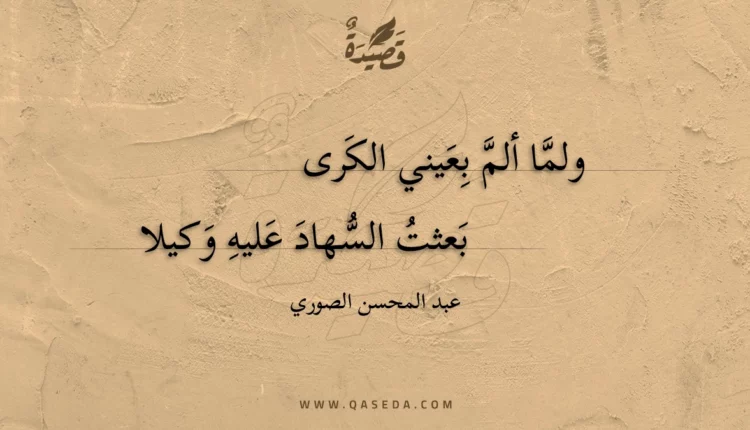 قَصِيدَةٌ
ولمَّا ألمَّ بِعَيني الكَرى
بَعثتُ السُّهادَ عَليهِ وَكيلا
عبد المحسن الصوري
WWW.QASEDA.COM